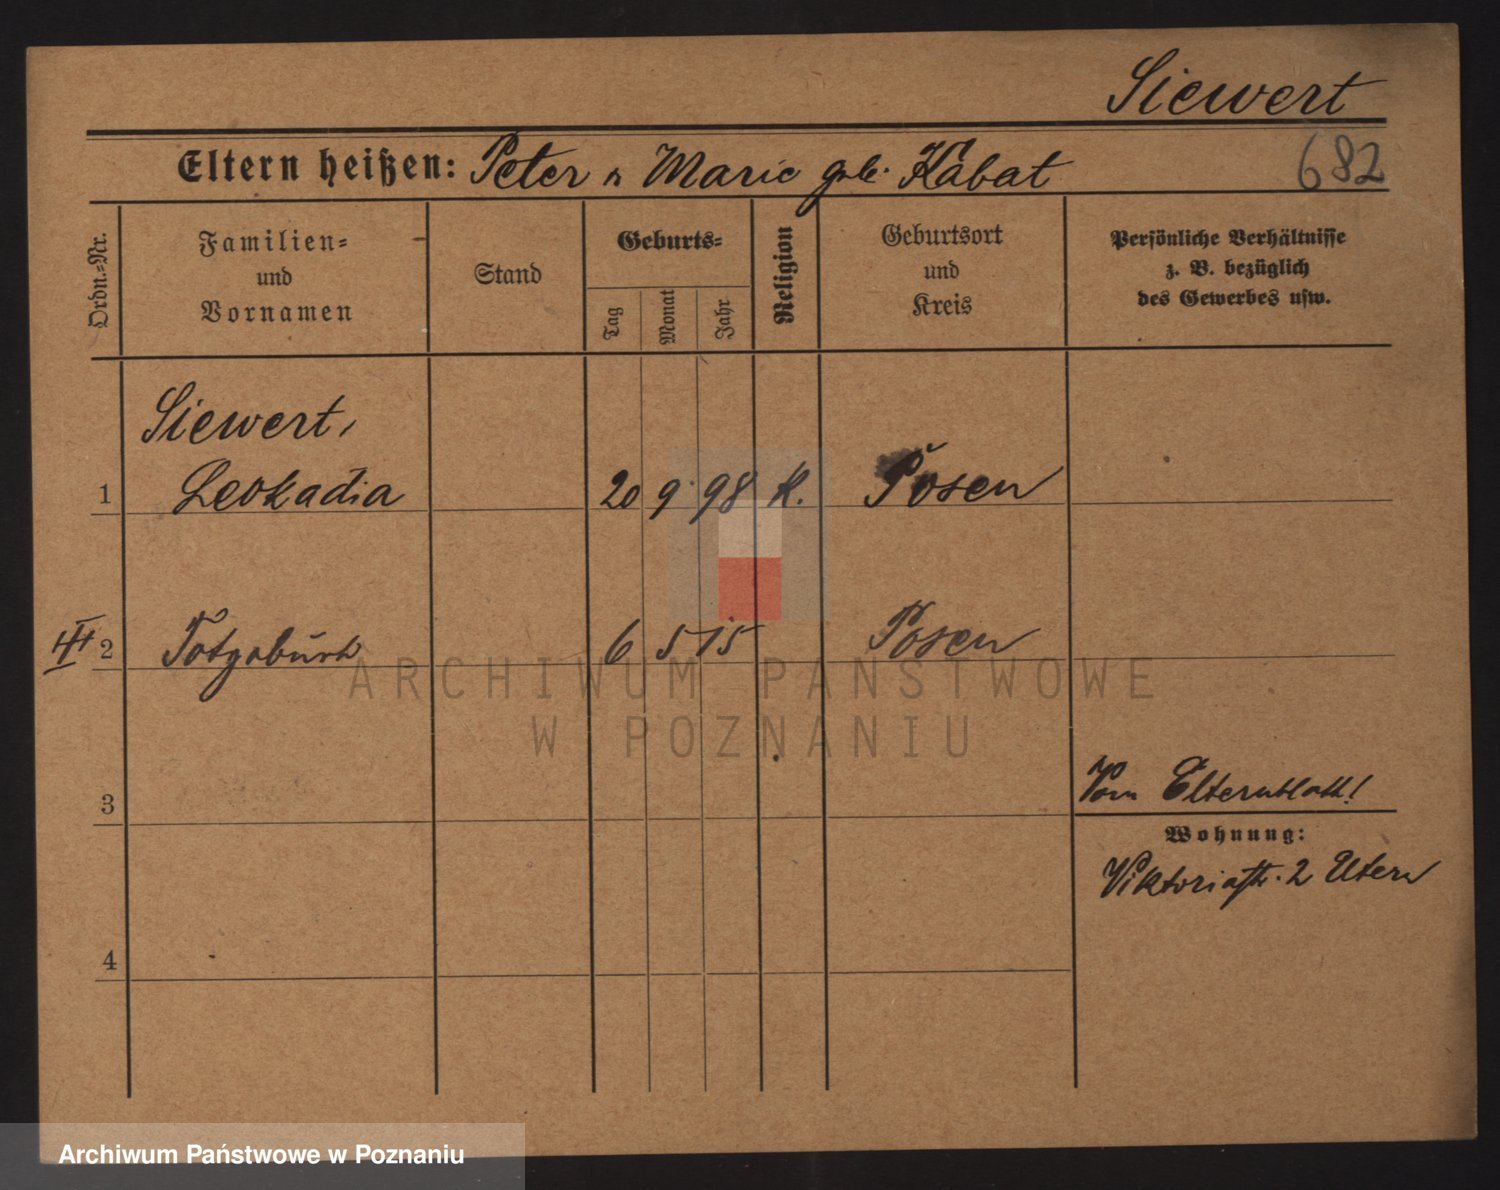 Siewert
Eltern heißen: Peter u Marie geb. Kabat
682
Ordn.=Nr.
Familien=
und
Vornamen
Stand
Geburts=
Tag
Monat
Jahr
Religion
Geburtsort
und
Kreis
Persönliche Verhältnisse
z. B. bezüglich
des Gewerbes usw.
Siewert,
1 Leokadia 20 9. 98 K. Posen
2 Totgeburt 6 5 15 Posen
3
Vom Elternblatt!
Wohnung:
Viktoriastr. 2 Eltern
4
ARCHIWUM PAŃSTWOWE
W POZNANIU
Archiwum Państwowe w Poznaniu